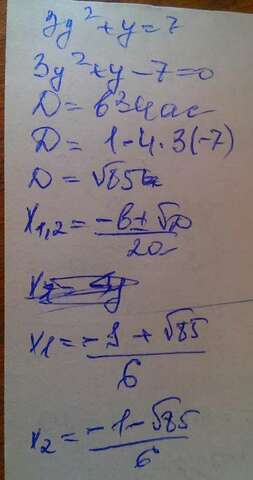 3y² + y = 7
3y² + y - 7 = 0
D = b² - 4ac
D = 1 - 4 · 3(-7)
D = √85
x₁,₂ = (-b ± √D) / 2a
x₁ = (-1 + √85) / 6
x₂ = (-1 - √85) / 6